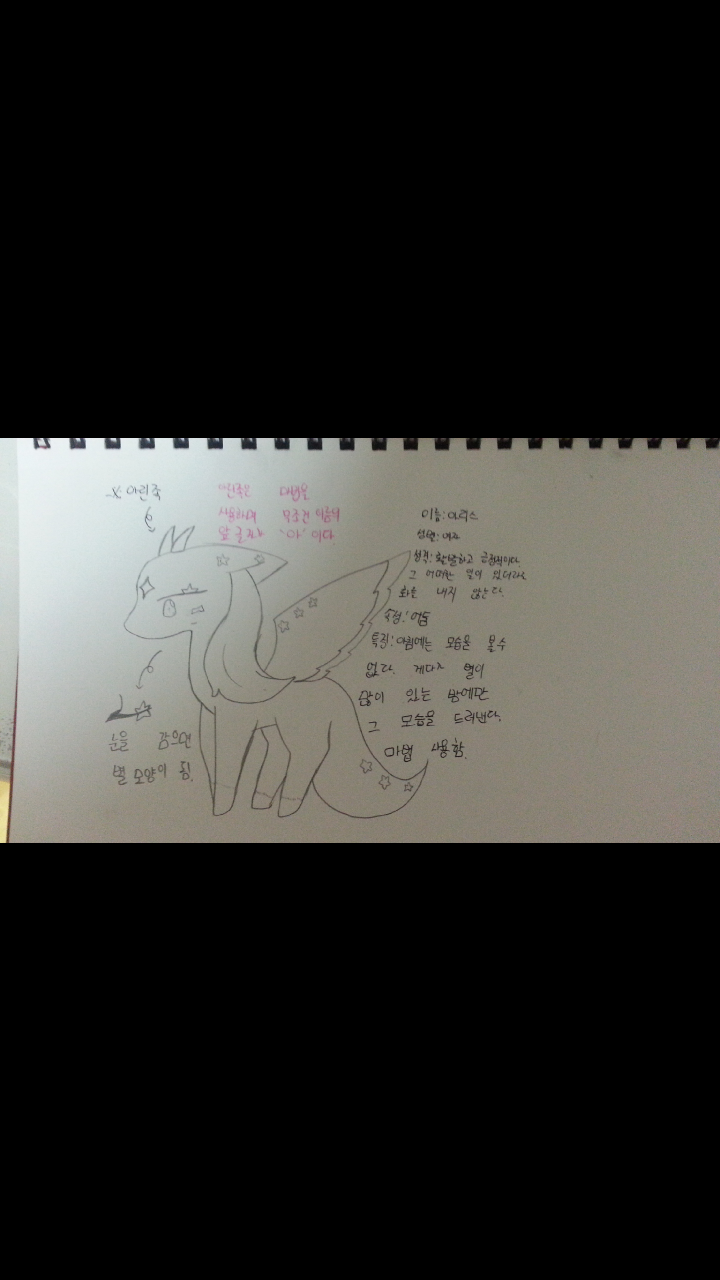 ※ 아린족
아린족은 마법을
사용하며 무조건 이름의
앞 글자는 '아'이다.
이름: 아리스
성별: 여자
성격: 활발하고 긍정적이다.
그 어떠한 일이 있더라도
화를 내지 않는다.
속성: 어둠
특징: 아침에는 모습을 볼수
없다. 게다가 별이
많이 있는 밤에만
그 모습을 드러낸다.
마법 사용함.
눈을 감으면
별 모양이 됨.